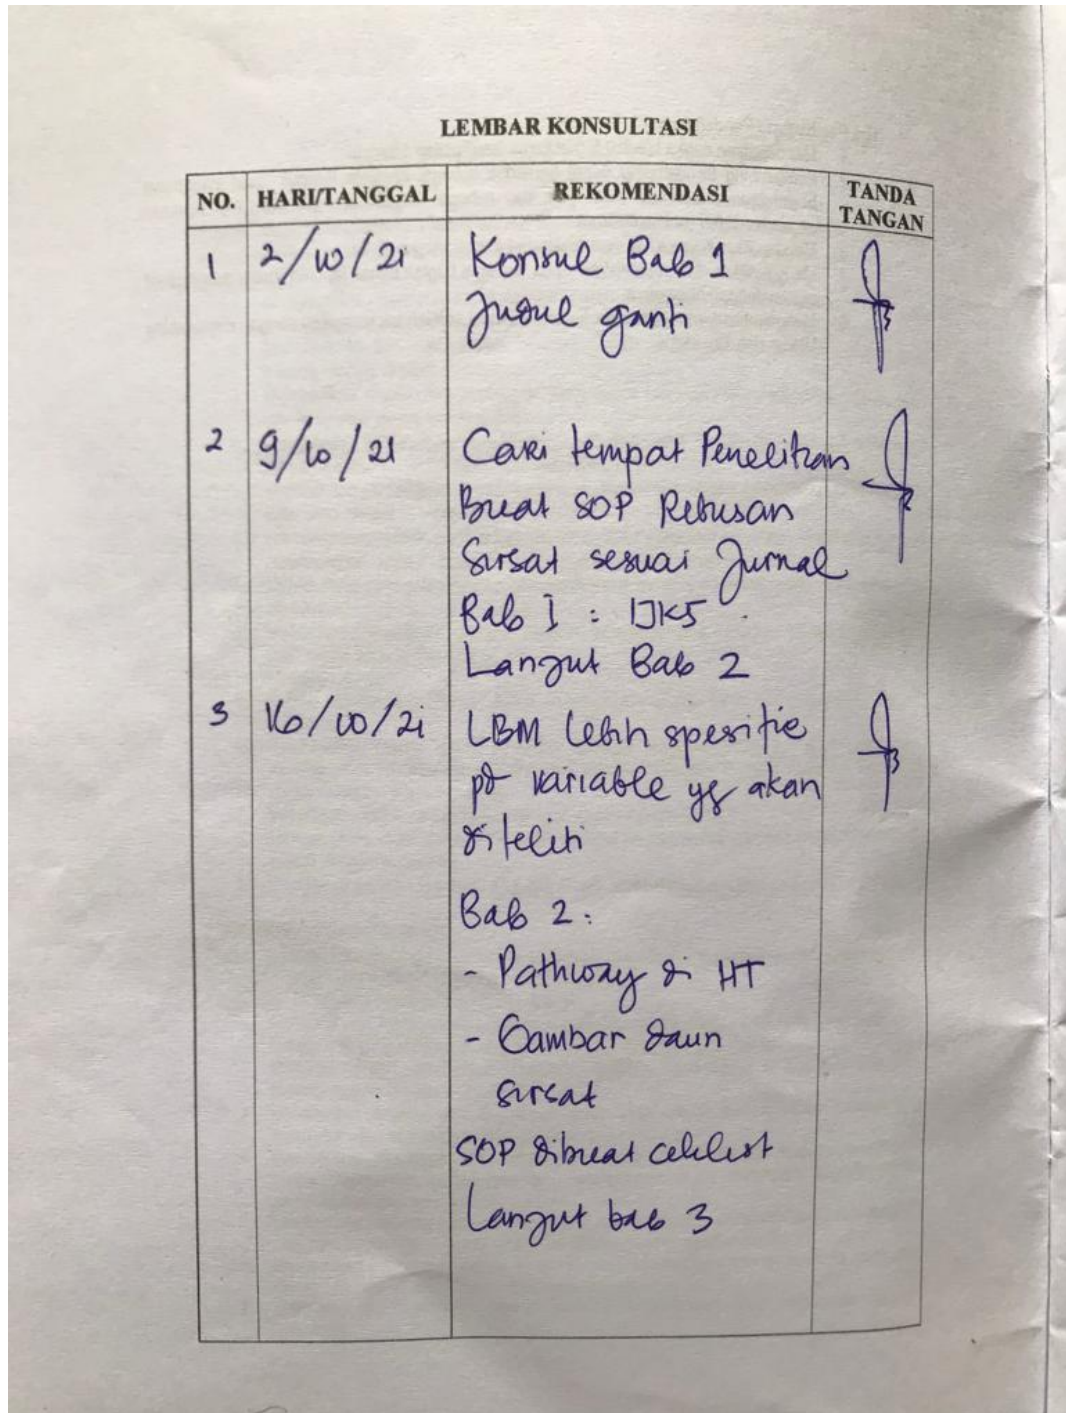 LEMBAR KONSULTASI
NO. HARI/TANGGAL REKOMENDASI TANDA TANGAN
1 2/10/21 Konsul Bab 1
Judul ganti
2 9/10/21 Cari tempat Penelitian
Buat SOP Rebusan
Sirsat sesuai Jurnal
Bab I :
Lanjut Bab 2
3 16/10/21 LBM lebih spesifik
pd variable yg akan
diteliti
Bab 2:
- Pathway di HT
- Gambar daun
sirsat
SOP dibuat ceklist
Lanjut bab 3